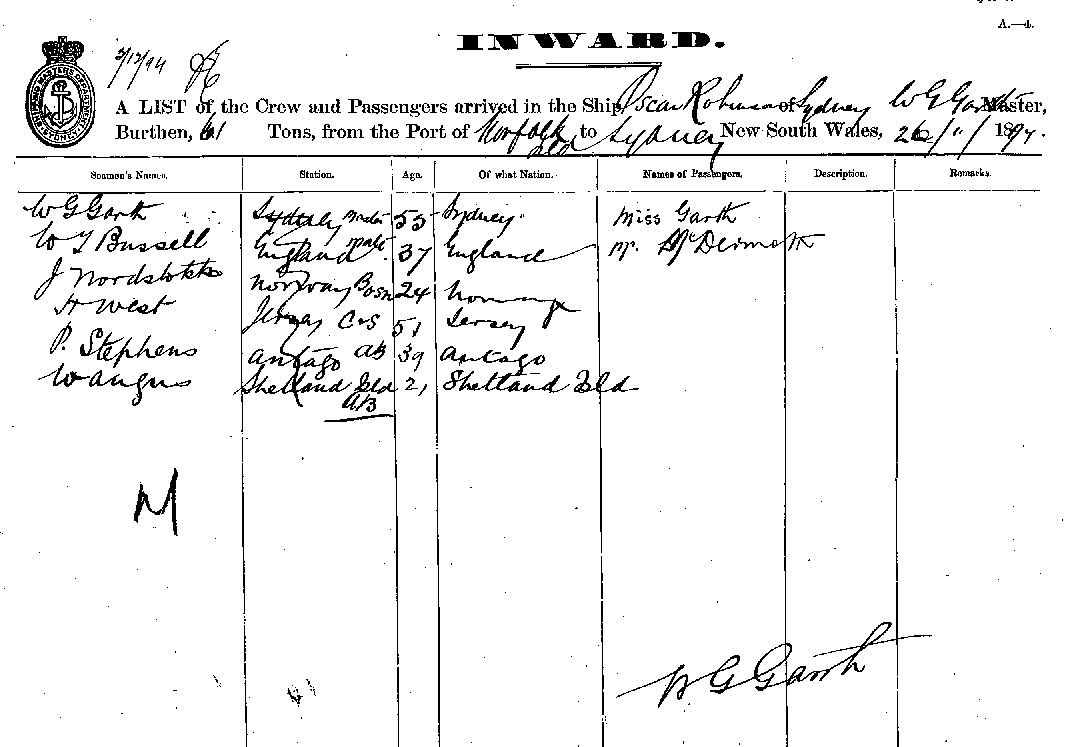 A.—4.
INWARD.
3/12/94
A LIST of the Crew and Passengers arrived in the Ship Oscar Robinson of Sydney W G Garth Master,
Burthen, 61 Tons, from the Port of Norfolk Isld to Sydney New South Wales, 26/11/1894.
Seamen's Names. Station. Age. Of what Nation. Names of Passengers. Description. Remarks.
W G Garth Sydney Master 55 Sydney Miss Garth
W J Bussell England Mate 37 England Mr McDermott
J Nordstokke Norway Bosn 24 Norway
H West Jersey C & S 51 Jersey
P. Stephens Antago AB 39 Antago
W Angus Shetland Isld AB 21 Shetland Isld
M
W G Garth